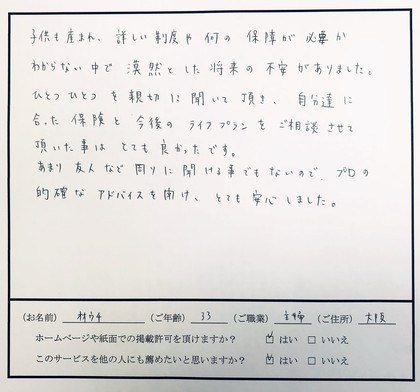 子供も産まれ、詳しい制度や何の保障が必要か
わからない中で漠然とした将来の不安がありました。
ひとつひとつを親切に聞いて頂き、自分達に
合った保険と今後のライフプランをご相談させて
頂いた事はとても良かったです。
あまり友人など周りに聞ける事でもないので、プロの
的確なアドバイスを聞け、とても安心しました。
(お名前) (ご年齢) 33 (ご職業) 主婦 (ご住所) 大阪
ホームページや紙面での掲載許可を頂けますか? ☑ はい □ いいえ
このサービスを他の人にも薦めたいと思いますか? ☑ はい □ いいえ